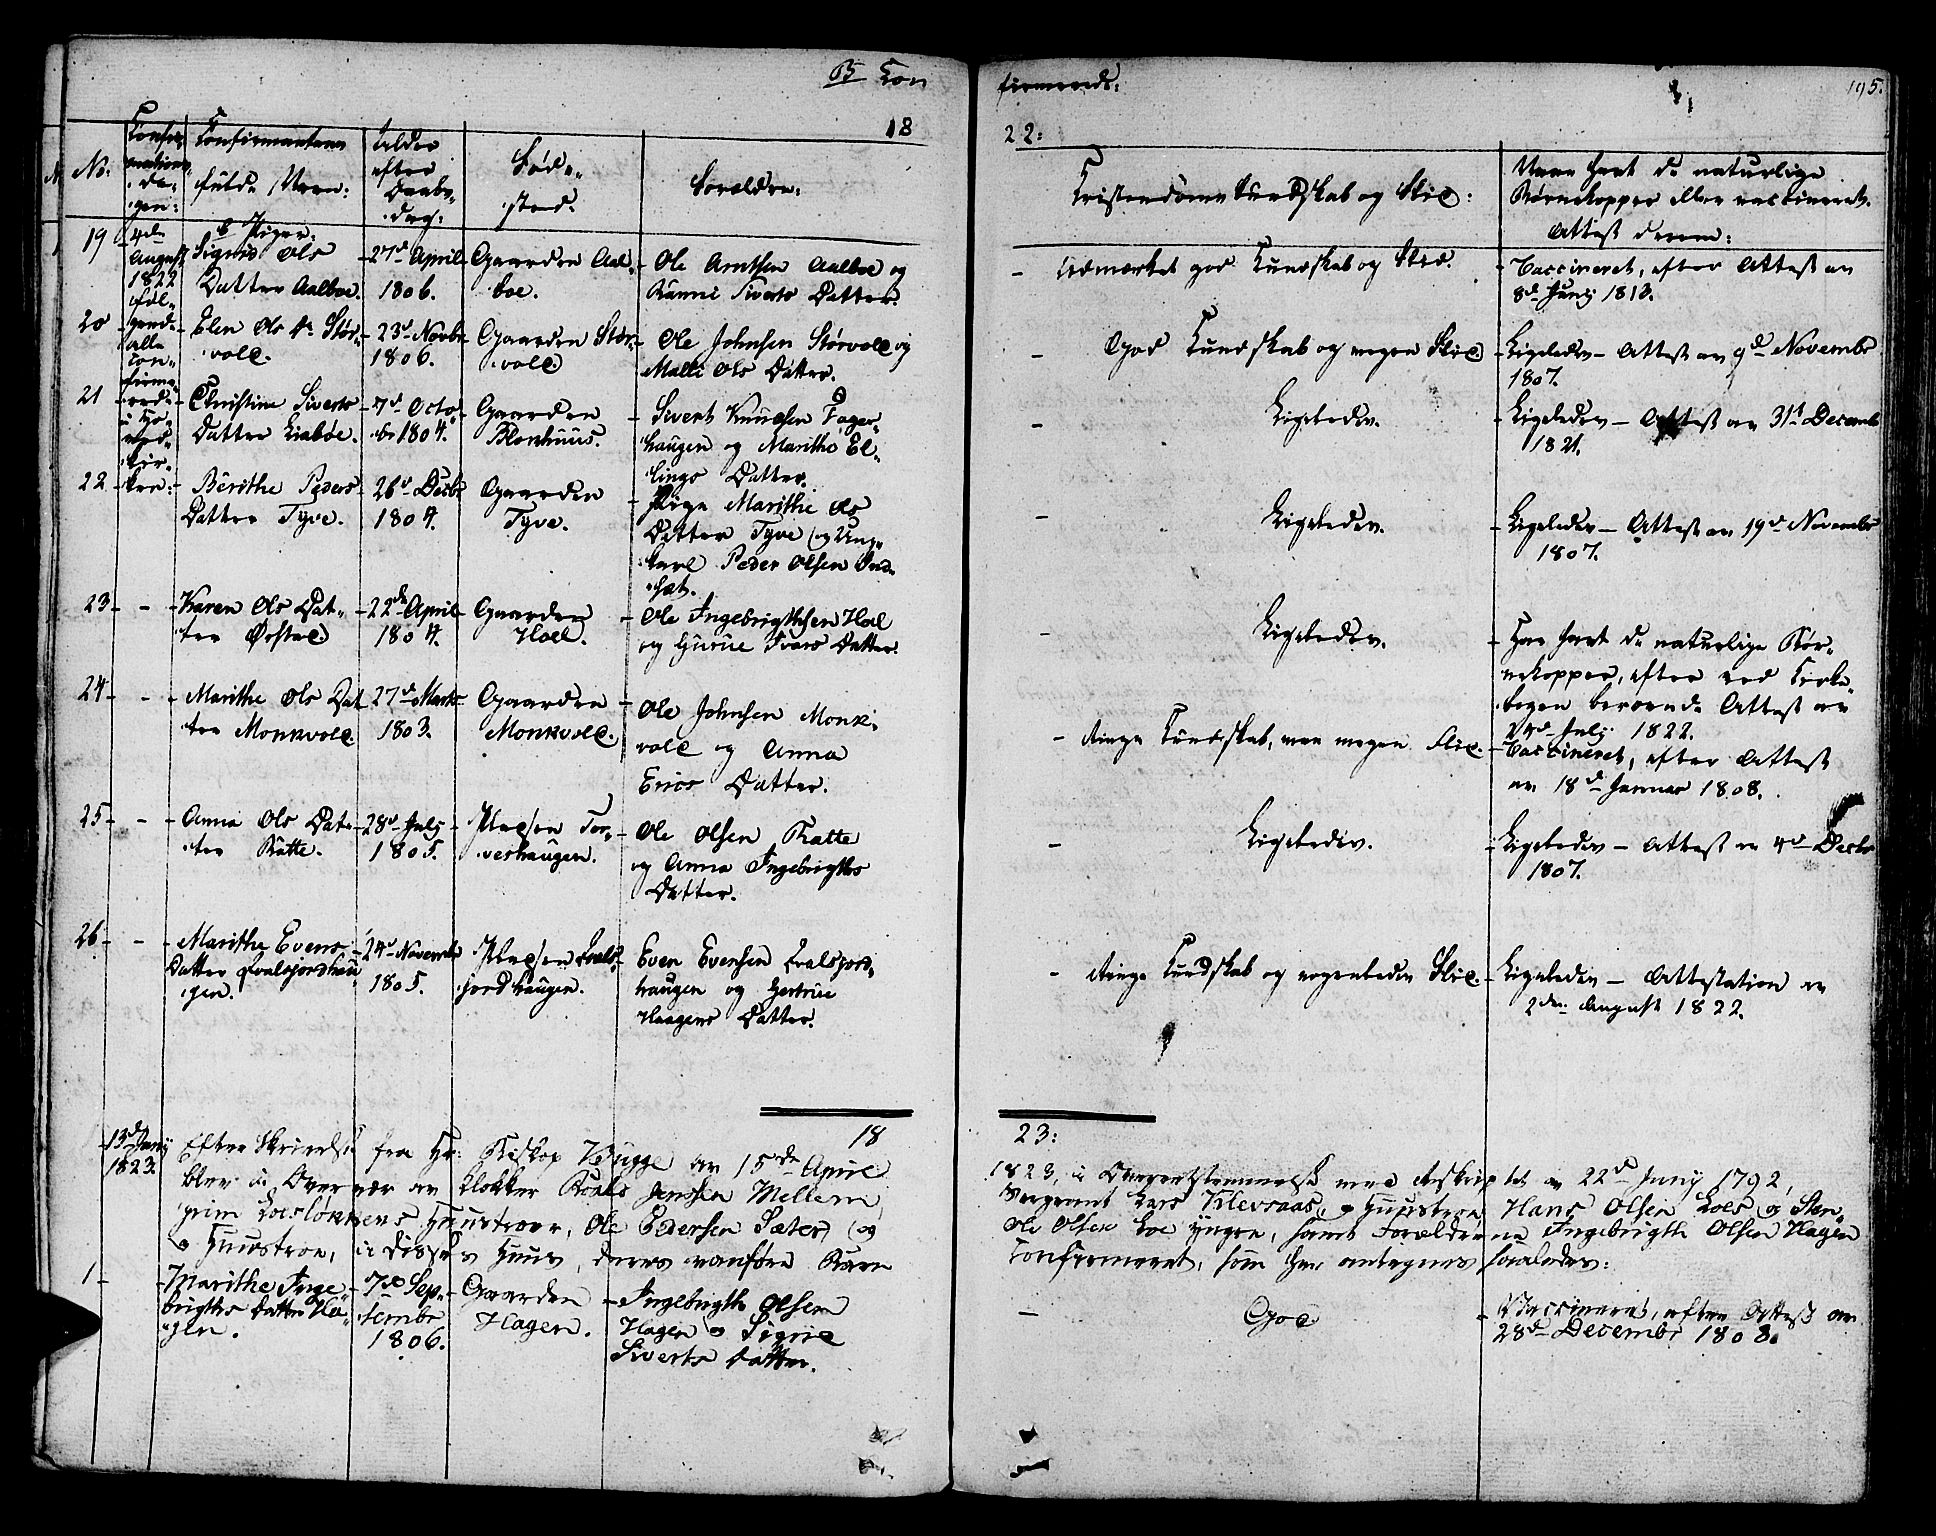 B Con
firmerede:
195.
18
22:
No:
Confir-
mations-
da-
gen:
Confirmantens
fulde Navn:
Alder
efter
Daabs-
dag.
Føde-
sted.
Forældre:
Kristendoms Kundskab og Flid:
Have havt de naturlige
Børnekopper eller vaccineret.
Attest derom:
8 Piger:
4de
August
1822
føl-
gende
alle
con-
firme-
rede
i Ho-
ved-
kir-
ken:
19
Sigrid Ols
Datter Aalboe.
27d April
1806.
Gaarden Aal-
boe.
Ole Arntsen Aalboe og
Ranni Siverts Datter.
Udmærket god Kundskab og Flid.
Vaccineret, efter Attest av
8d Junij 1813.
20
Elen Ols Dr. Stør-
vold.
23d Novbr
1806.
Gaarden Stør-
vold.
Ole Johnsen Størvold og
Malli Ols Datter.
God Kundskab og megen Flid.
Ligeledes – Attest av 9d Novembr
1807.
21
Christine Siverts
Datter Liabøe.
7d Octo-
br 1804.
Gaarden
Blonhuus.
Sivert Knudsen Fager-
haugen og Marithe El-
lings Datter.
Ligeledes.
Ligeledes – Attest av 31t Decemb
1821.
22
Berithe Peders
Datter Tyve.
26d Decbr
1804.
Gaarden
Tyve.
Pige Marithe Ols
Datter Tyve og Ung-
karl Peder Olsen Ind-
sat.
Ligeledes.
Ligeledes – Attest av 19d Novembr
1807.
23
Karen Ols Dat-
ter Ørstad.
22de April
1804.
Gaarden
Hoel.
Ole Ingebrigthsen Hoel
og Gurue Ivars Datter.
Ligeledes.
Har havt de naturlige Bør-
nekopper, efter ved Kirke-
bogen beroende Attest av
24d July 1822.
24
Marithe Ols Dat
ter Monkvold.
27d Marts
1803.
Gaarden
Monkvold.
Ole Johnsen Monk-
vold og Anna
Erics Datter.
Ringe Kundskab, men megen Flid.
Vaccineret, efter Attest
av 18d Januar 1808.
25
Anna Ols Dat-
ter Ratte.
28d July
1805.
Pladsen Tor-
veshaugen.
Ole Olsen Ratte
og Anna Ingebrigths
Datter.
Ligeledes.
Ligeledes – Attest av 4d Decbr
1807.
26
Marithe Evens
Datter Evalsjordhau
gen.
24d Novembr
1805.
Pladsen Evals-
jordhaugen.
Even Evensen Evalsjord-
haugen og Gertrue
Haagens Datter.
Ringe Kundskab og nogenledes Flid.
Ligeledes – Attestation av
2den August 1822.
18
23:
13d Juny
1823.
Efter Skrivelse fra Hr: Biskop Bugge av 15de April
1823, i Overeensstemmelse med Rescriptet av 22d Juny 1792,
blev i Overvær av Klokker Roals Jensen Mellem,
Sergeant Lars Klevraas, og Huustroe Hans Olsen Loes og Sten-
grim Loesløkkens Huustroer, Ole Pedersen Sæter og
Ole Olsen Loe yngre, samt Forældrene Ingebrigth Olsen Hagen
og Huustroe, i disses Huus, deres vanføre Barn
Confirmeret, som her antegnes saaledes:
1
Marithe Inge-
brigths Datter Ha-
gen.
7de Sep-
tembr
1806.
Gaarden
Hagen.
Ingebrigth Olsen
Hagen og Sigrie
Siverts Datter.
God
Vaccineret, efter Attest av
28d Decembr 1808.